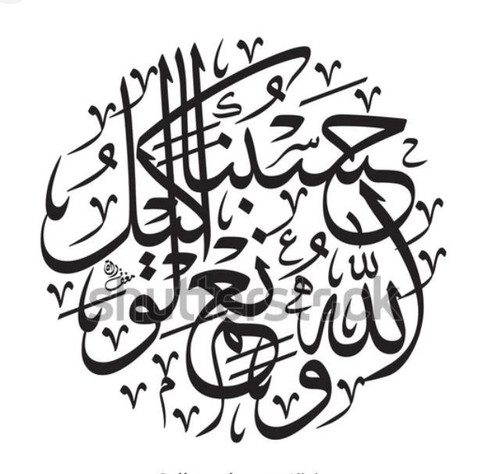 حسبنا الله ونعم الوكيل
shutterstock